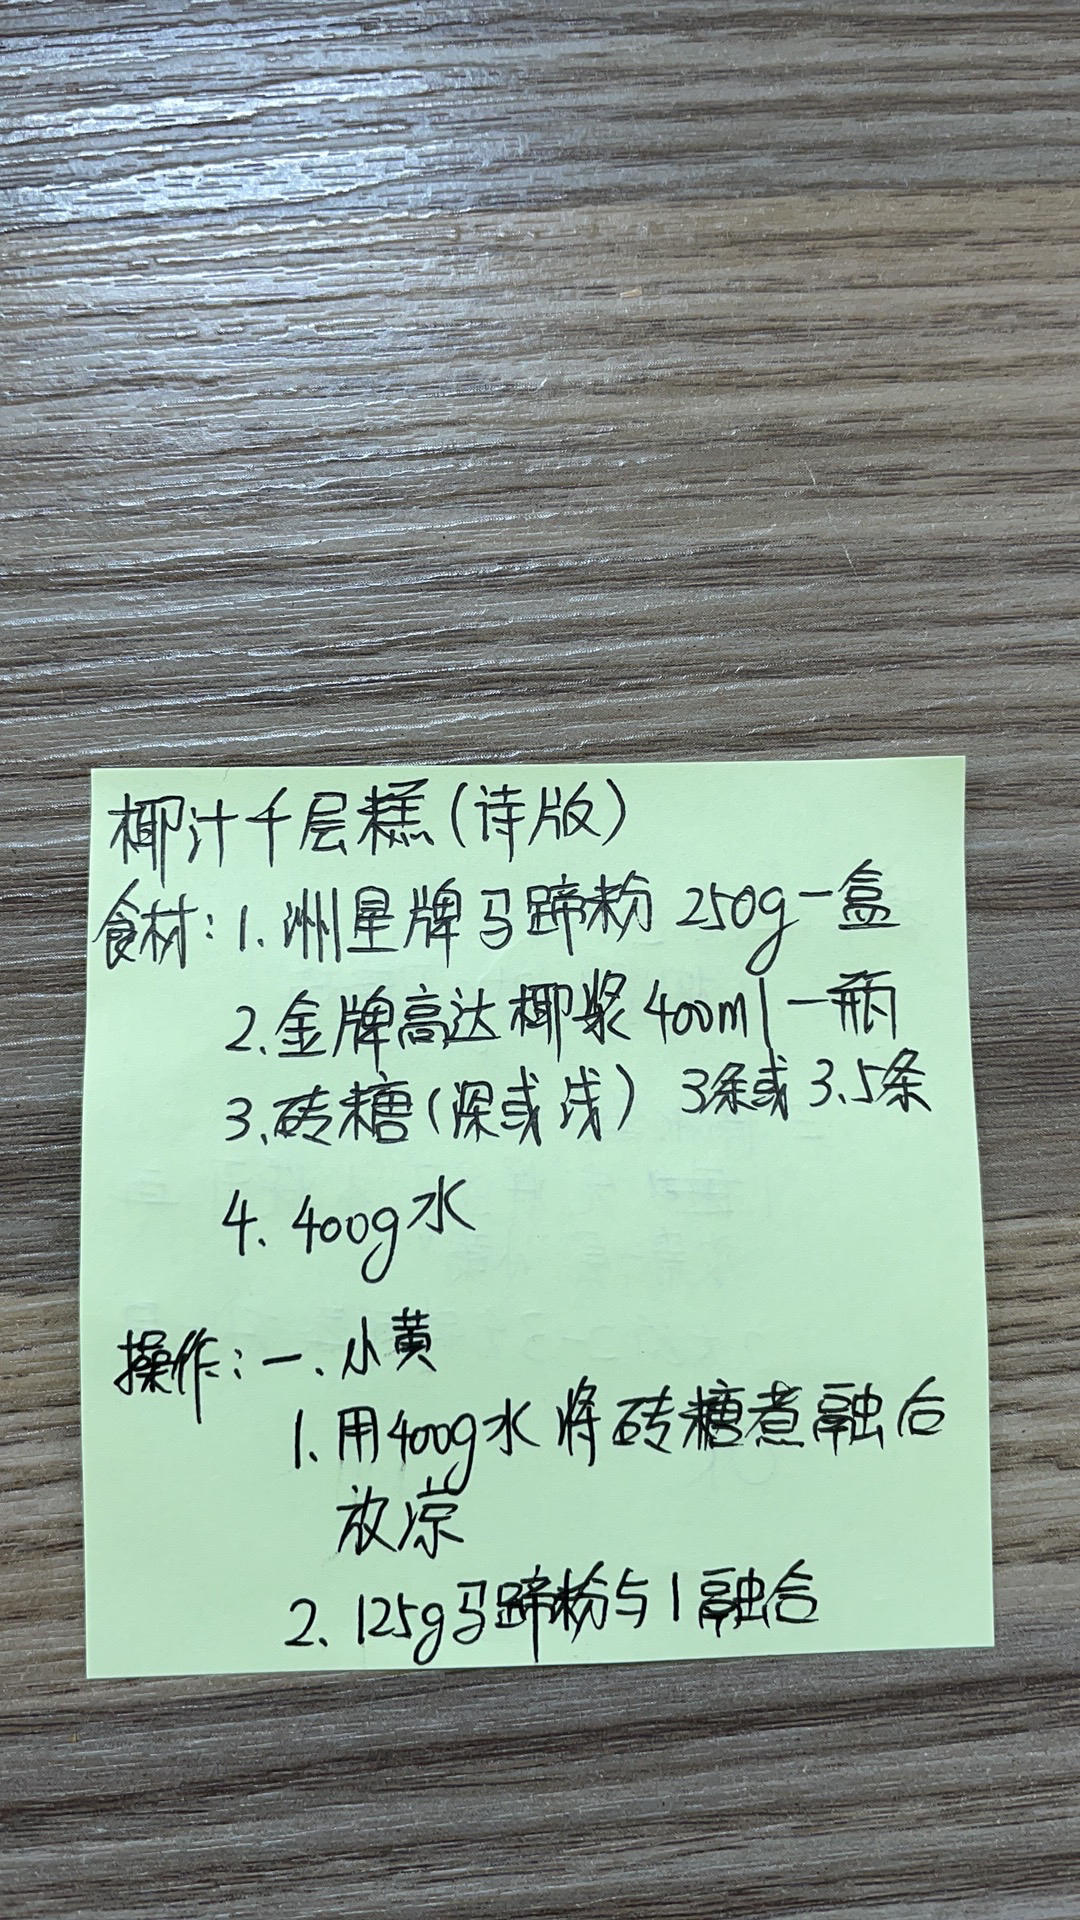 椰汁千层糕(诗版)
食材:1.洲星牌马蹄粉 250g一盒
2.金牌高达椰浆400ml一瓶
3.砖糖(深或浅) 3条或3.5条
4.400g水
操作:一.小黄
1.用400g水将砖糖煮融后
放凉
2.125g马蹄粉与1融合